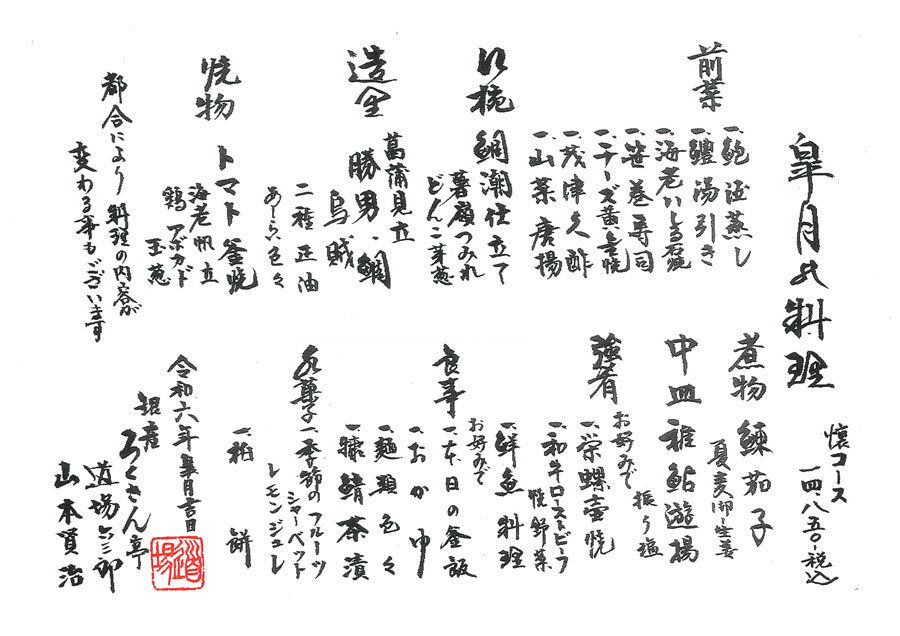 皐月の料理
懐コース
一四、八五〇 税込
前菜
一、鮑酒蒸し
一、鱧湯引き
一、海老いしる焼
一、笹巻寿司
一、チーズ黄金焼
一、茂津久酢
一、山菜唐揚
椀 鯛潮仕立て
薯蕷つみれ
どんこ 芽葱
造里 菖蒲見立
勝男、鯛
烏賊
二種正油
あしらい色々
焼物 トマト釜焼
海老 帆立
鶏 アボカド
玉葱
都合により料理の内容が
変わる事もございます
煮物 鰊茄子
生姜
中皿 稚鮎遊揚
振り塩
強肴 お好みで
一、栄螺壷焼
一、和牛ローストビーフ
焼野菜
一、鮮魚料理
食事 お好みで
一、本日の釜飯
一、おかゆ
一、麺類色々
一、糠鯖茶漬
水菓子 一、季節のフルーツ
シャーベット
レモンジュレ
一、柏餅
令和六年皐月吉日
銀座 ろくさん亭
道場六三郎
山本賢治
道場